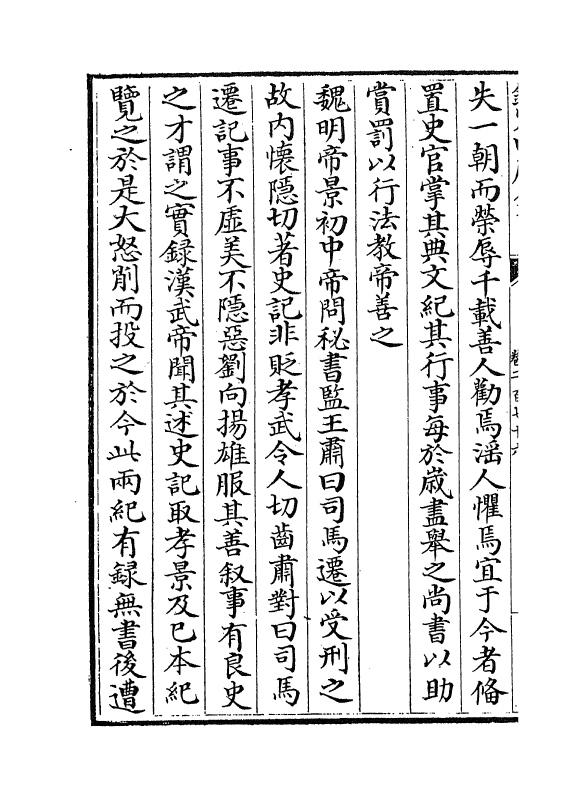 失一朝而榮辱千載善人勸焉滛人懼焉宜于今者俻
置史官掌其典文紀其行事每於嵗盡舉之尚書以助
賞罰以行法教帝善之
魏明帝景初中帝問秘書監王肅曰司馬遷以受刑之
故内懐隠切著史記非貶孝武令人切齒肅對曰司馬
遷記事不虛美不隠惡劉向揚雄服其善叙事有良史
之才謂之實録漢武帝聞其述史記取孝景及已本紀
覽之於是大怒削而投之於今此兩紀有録無書後遭